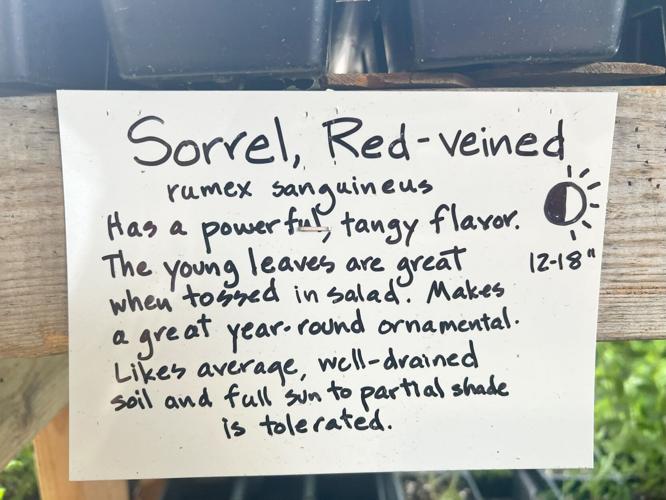 Sorrel, Red-veined
rumex sanguineus
Has a powerful, tangy flavor.
The young leaves are great
12-18"
when tossed in salad. Makes
a great year-round ornamental.
Likes average, well-drained
soil and full sun to partial shade
is tolerated.